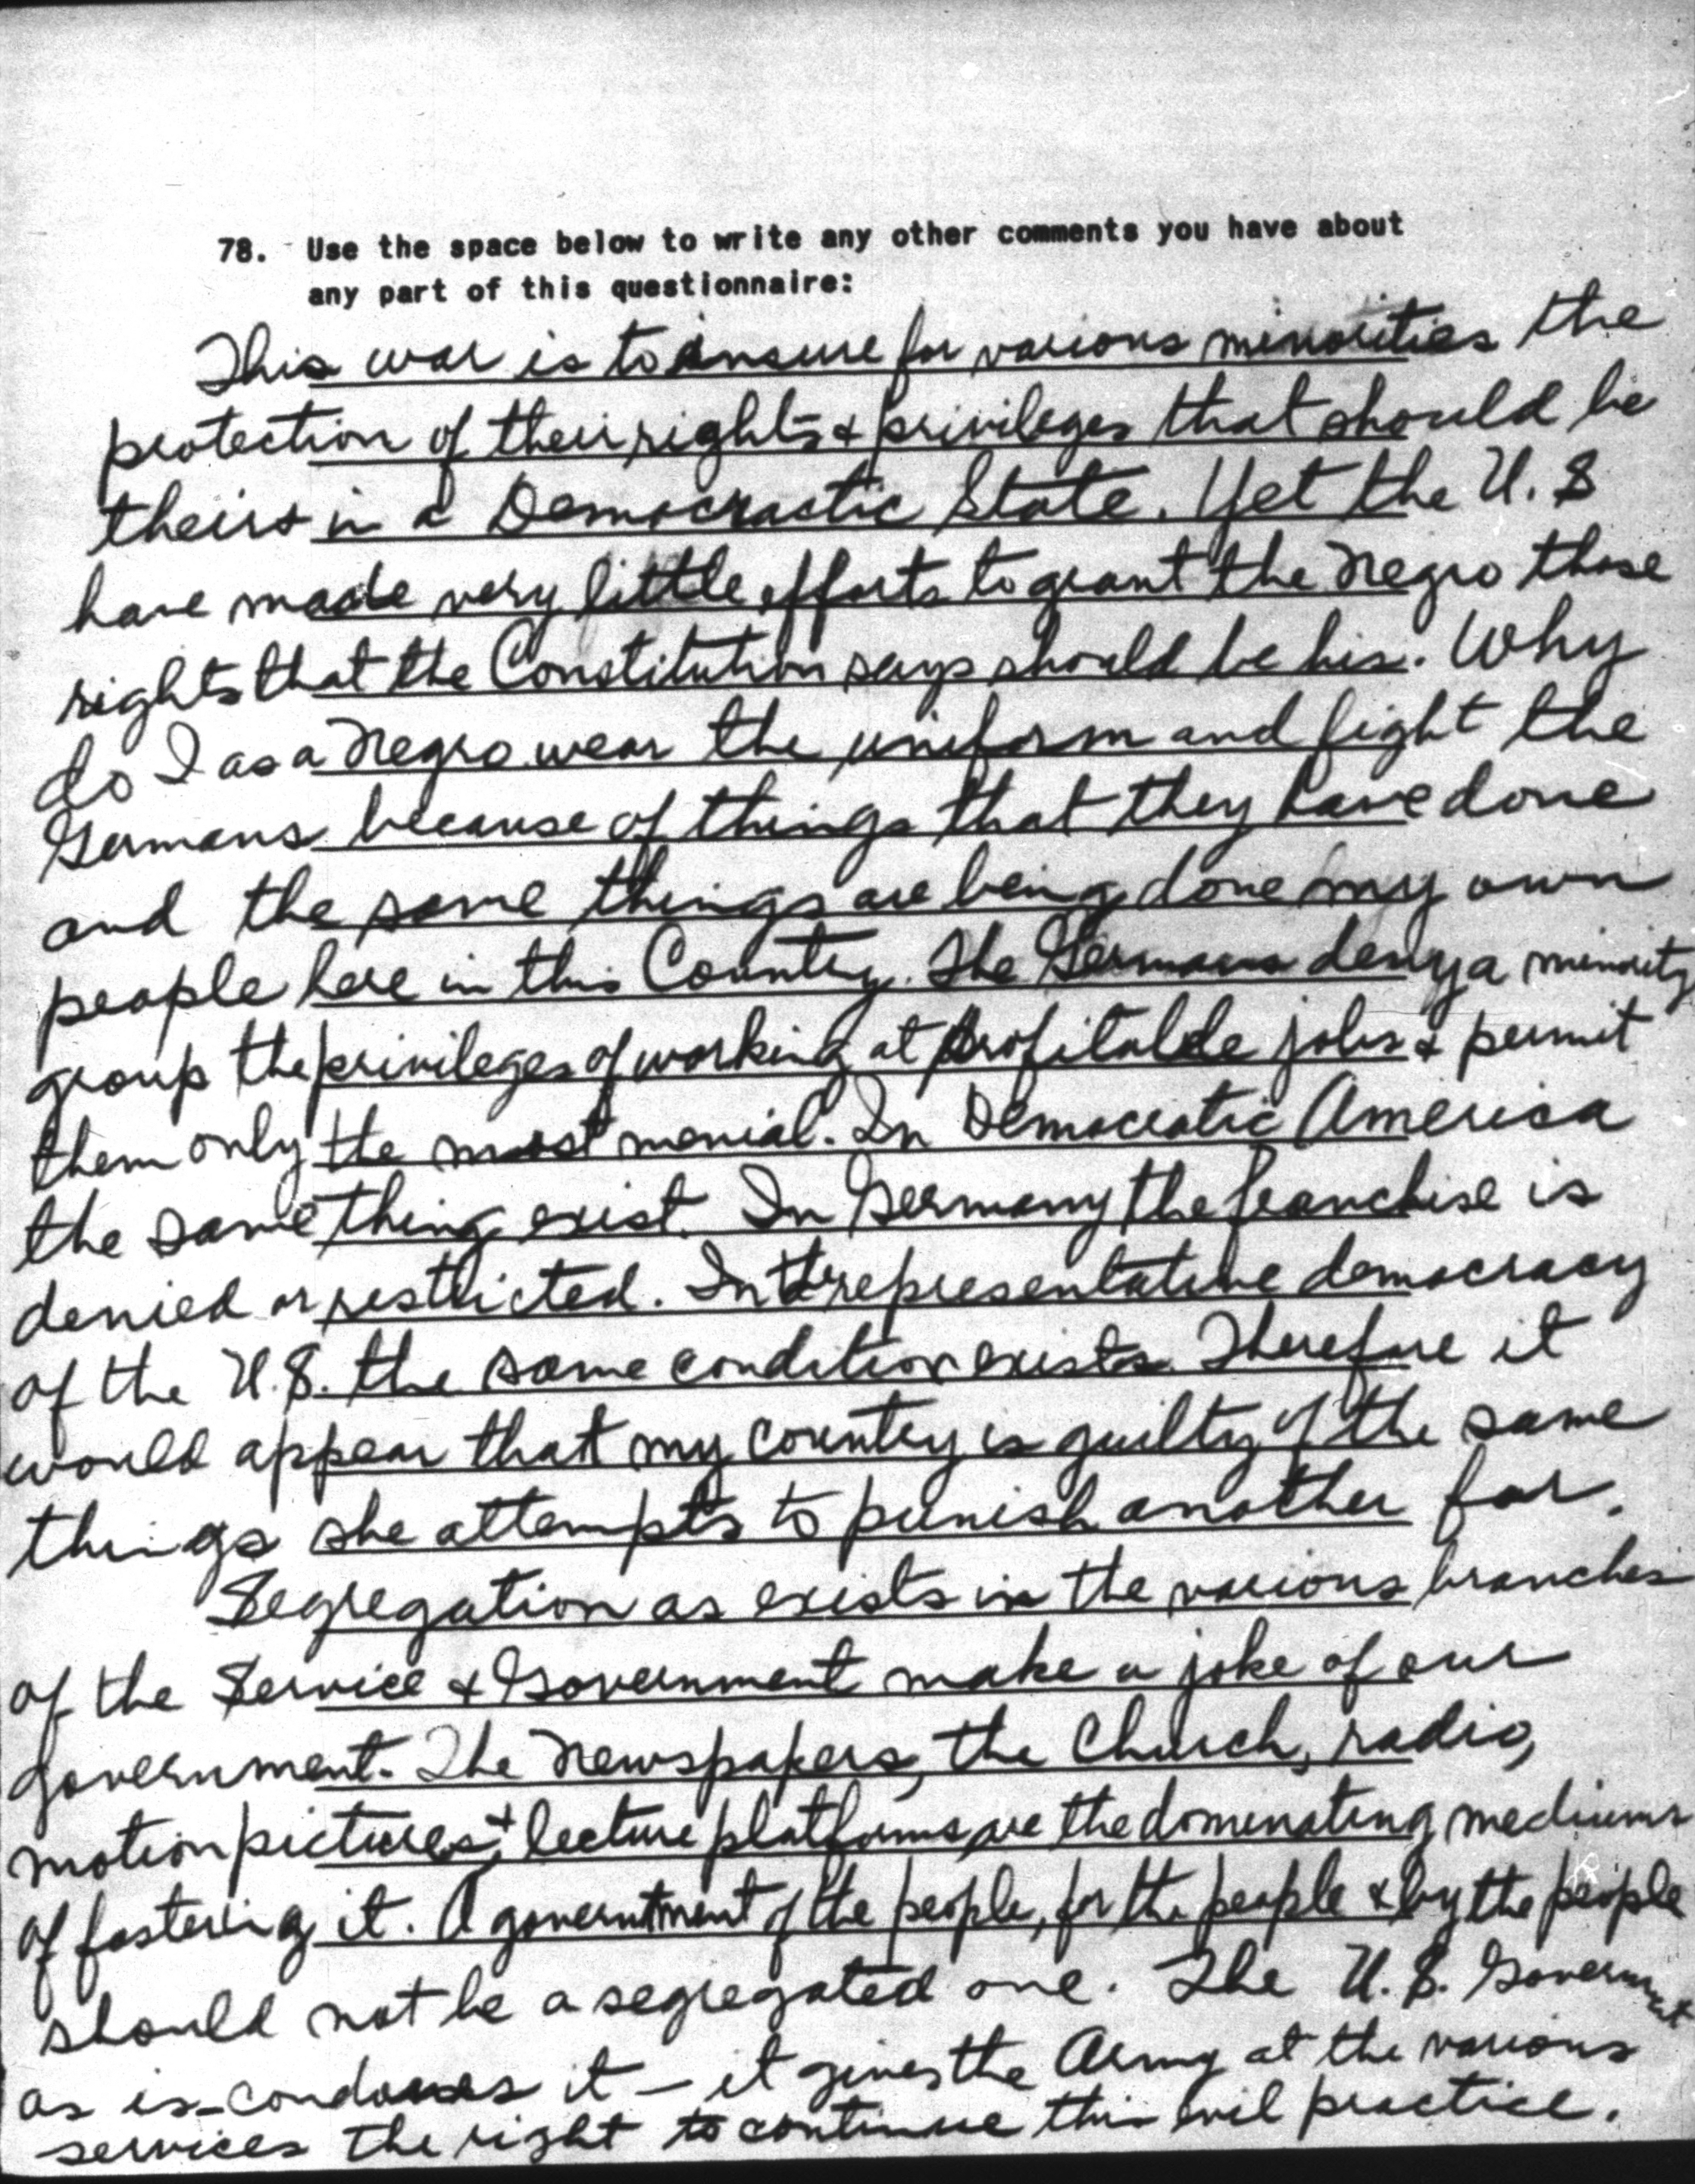 78. Use the space below to write any other comments you have about
any part of this questionnaire:
This war is to insure for various minorities the
protection of their rights & privileges that should be
theirs in a Democractic State. Yet the U.S
have made very little efforts to grant the Negro those
rights that the Constitution says should be his. Why
do I as a Negro wear the uniform and fight the
Germans because of things that they have done
and the same things are being done my own
people here in this Country. The Germans deny a minority
group the privileges of working at profitable jobs & permit
them only the most menial. In Democratic America
the same thing exist. In Germany the franchise is
denied or restricted. In the representative democracy
of the U.S. the same condition exists. Therefore it
would appear that my country is guilty of the same
things she attempts to punish another for.
Segregation as exists in the various branches
of the Service & Government make a joke of our
government. The Newspapers, the Church, radio,
motion pictures & lecture platforms are the dominating mediums
of fostering it. A government of the people, for the people & by the people
should not be a segregated one. The U.S. Government
as is - condones it - it gives the Army at the various
services the right to continue this evil practice.